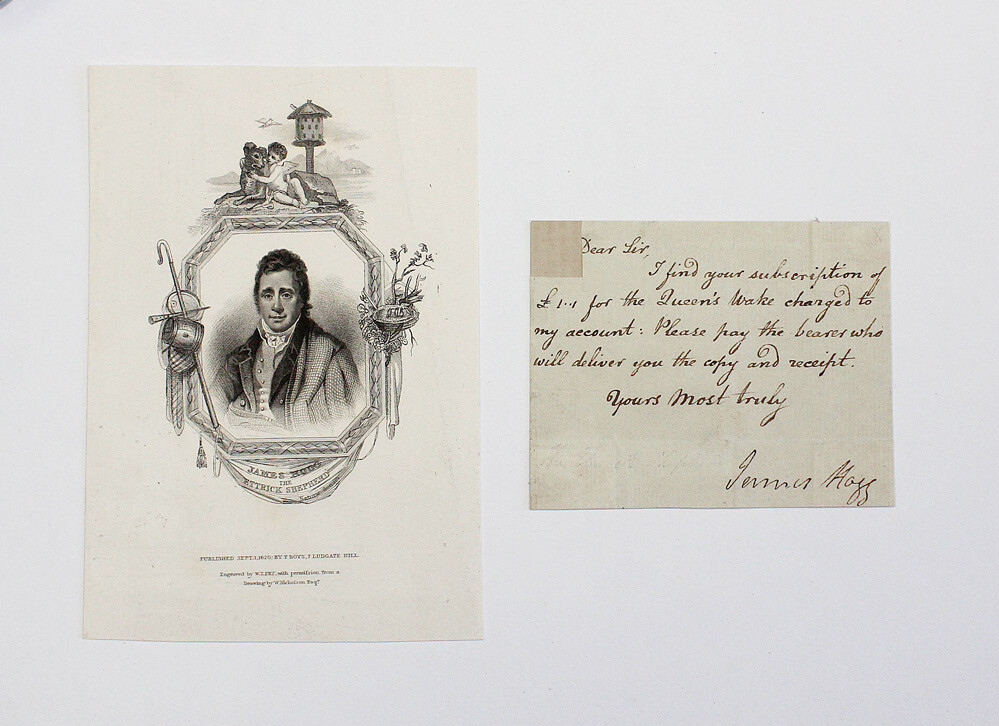 JAMES HOGG
THE
ETTRICK SHEPHERD
PUBLISHED SEPT. 1, 1820; BY T. BOYS, 7 LUDGATE HILL.
Engraved by with permission from a
Drawing by W. Nicholson Esqr.
Dear Sir,
I find your subscription of
£ 1..1 for the Queen's Wake charged to
my account: Please pay the bearer who
will deliver you the copy and receipt.
Yours Most truly
James Hogg